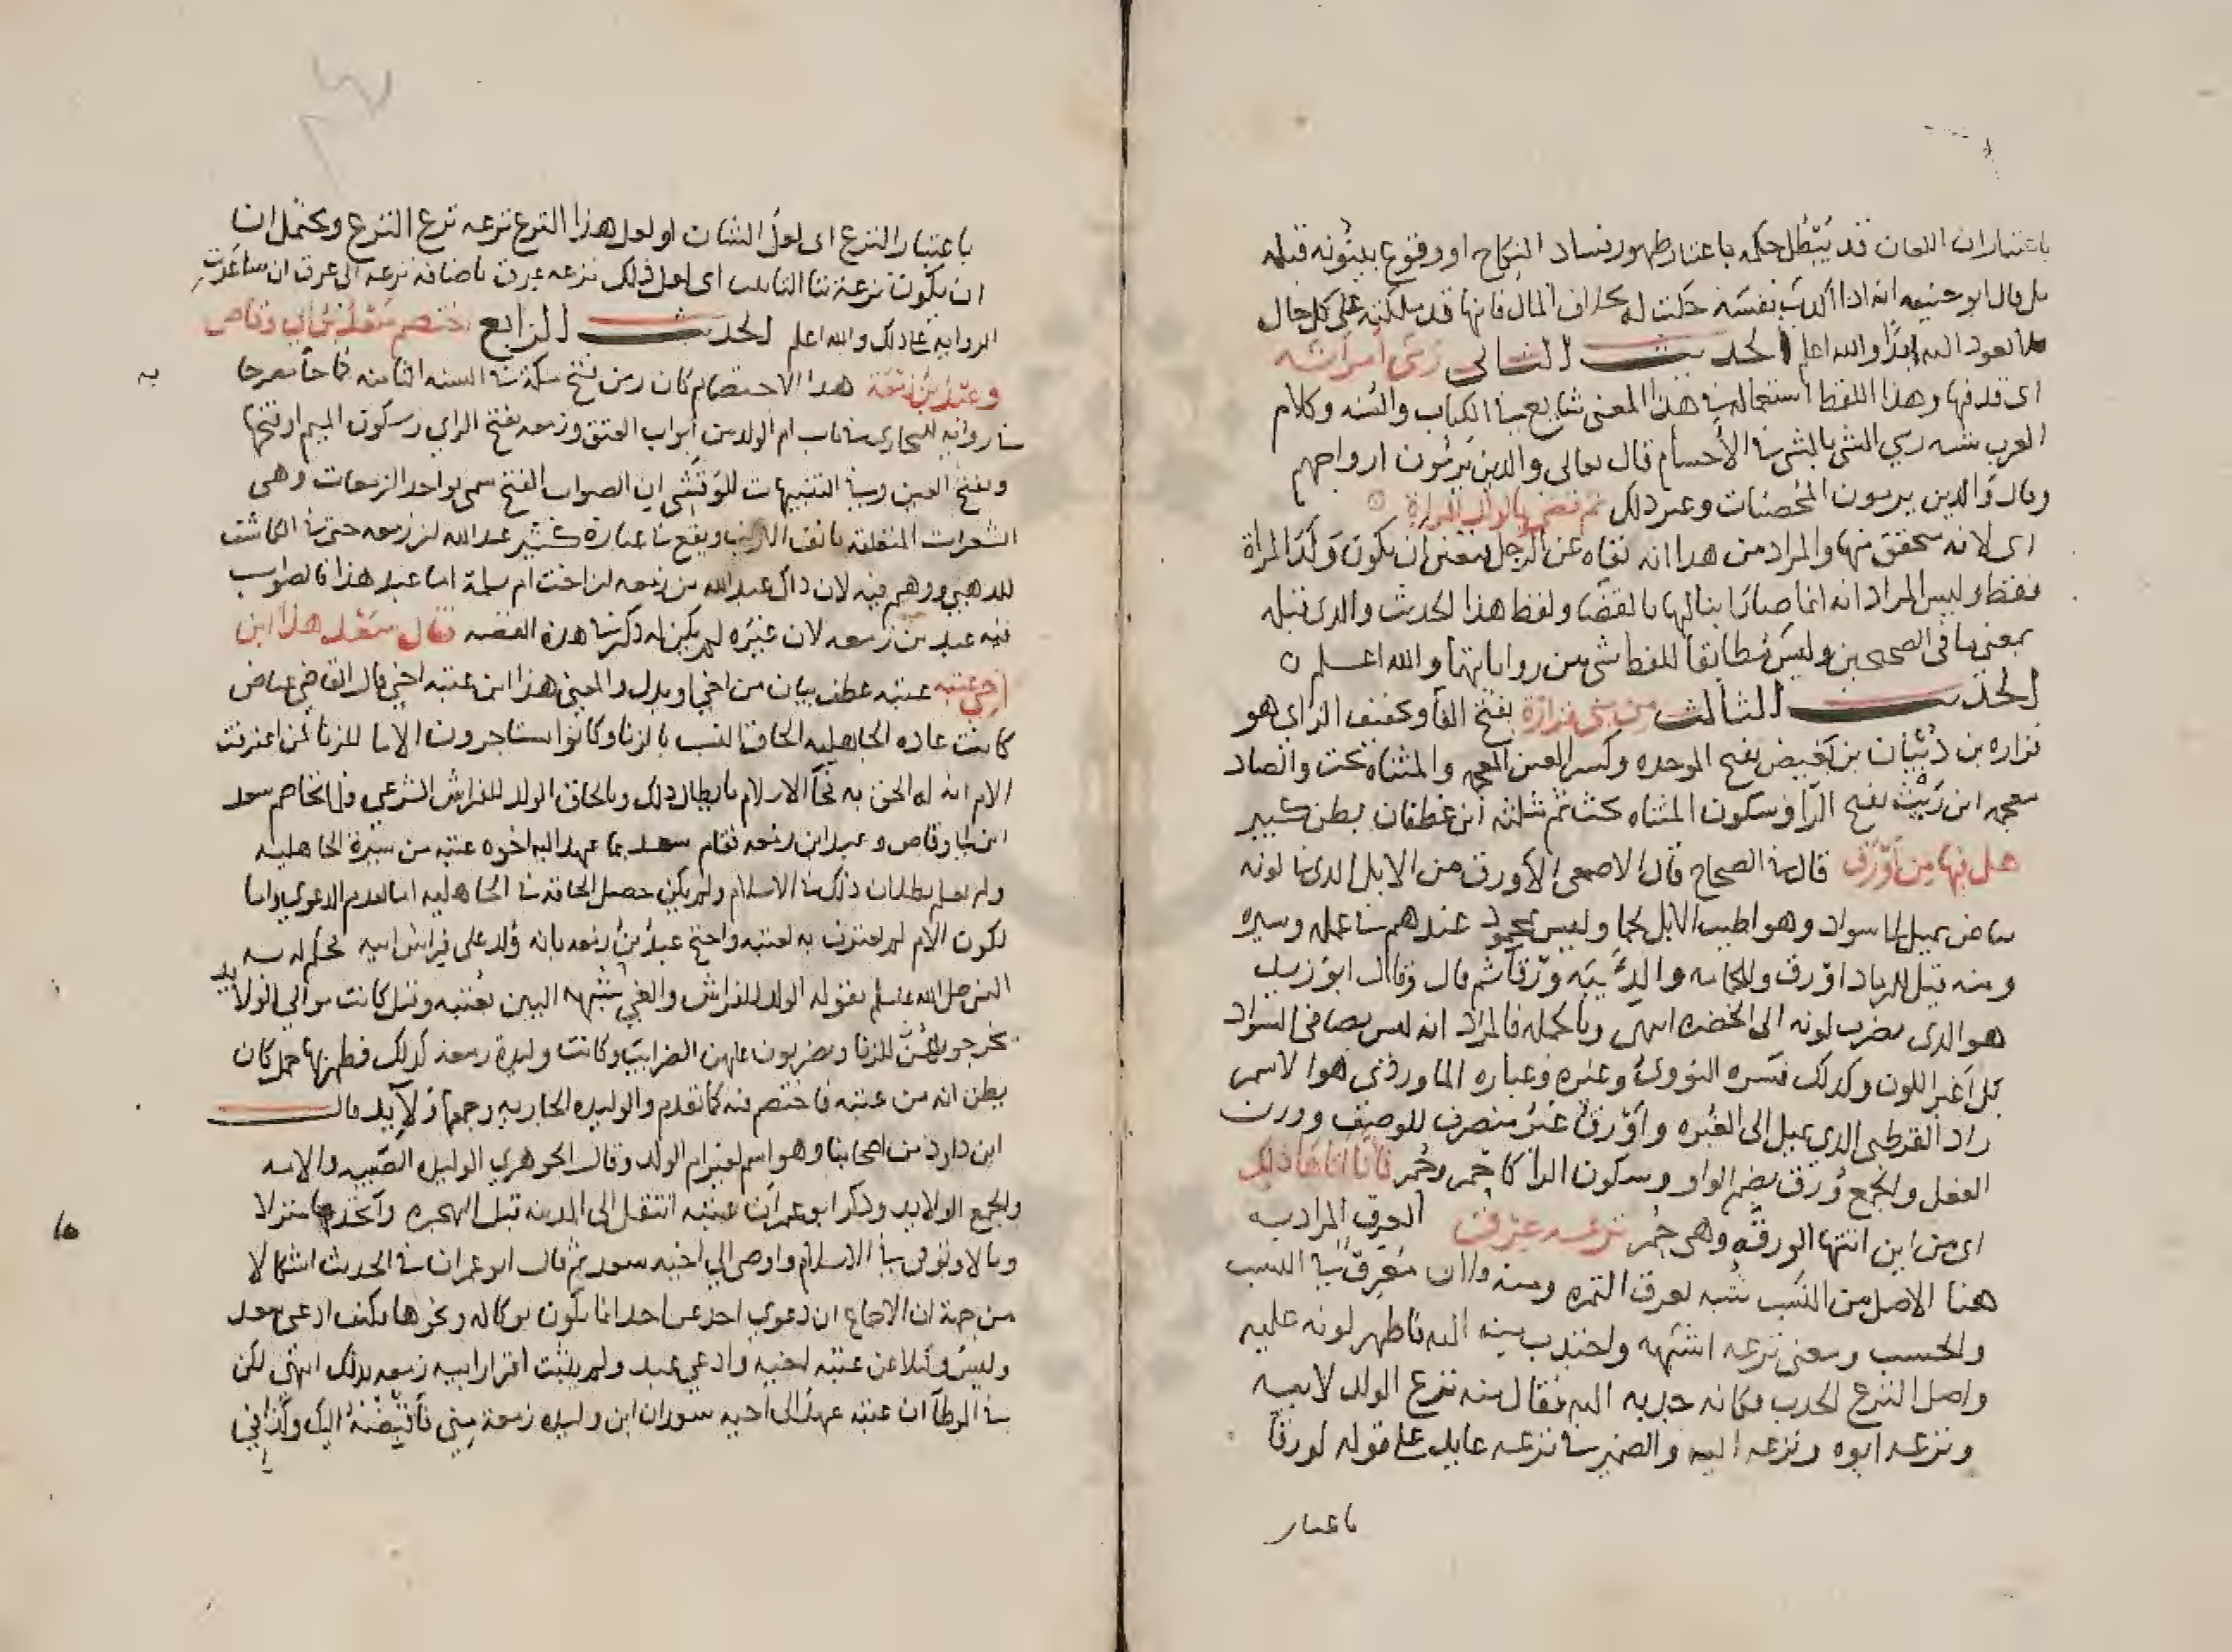 باعتبار ان اللعان قد يبطل حكمه باعتبار ظهور فساد النكاح او وقوع بينونة قبله
بل قال ابو حنيفه انه اذا اكذب نفسه حلت له بخلاف المال فانها قد ملكته على كل حال
فلا يعود اليه ابدا والله اعلم الحديث الثانى رمى امراته
اى قدفها وهذا اللفظ استعماله فى هذا المعنى شايع فى الكتاب والسنه وكلام
العرب شبه رمي الشى بالشى فى الأجسام قال تعالى والذين يرمون ازواجهم
وقال والذين يرمون المحصنات وغير ذلك ثم قضى بالولد للمراة
اى لانه متحقق منها والمراد من هذا انه نفاه عن الرجل فتعين ان يكون ولد المراة
فقط وليس المراد انه انما صار ابنا لها بالقضا ولفظ هذا الحديث والذى قبله
بمعنى ما فى الصحيحين وليس مطابقا للفظ شى من رواياتها والله اعلم
الحديث الثالث من بنى فزارة بفتح الفا وتخفيف الزاى هو
فزاره بن ذبيان بن بغيض بفتح الموحده وكسر الغين المعجمه والمثناه تحت والضاد
معجمه ابن ريث بفتح الرا وسكون المثناه تحت ثم مثلثه ابن غطفان بطن كبير
هل فيها من اورق قال فى الصحاح قال الاصمعى الاورق من الابل الذى فى لونه
بياض يميل الى سواد وهو اطيب الابل لحما وليس بمحمود عندهم فى عمله وسيره
ومنه قيل للرماد اورق وللحمامه والذئبيه ورقا ثم قال وقال ابو زيد
هو الذى يضرب لونه الى الخضره انتهى وبالجمله فالمراد انه ليس بصافى السواد
بل اغبر اللون وكذلك فسره النووى وغيره وعباره الماوردي هو الاسمر
زاد القرطبى الذى يميل الى الغبره واورق غير منصرف للوصف ووزن
الفعل والجمع وُرق بضم الواو وسكون الرا كاحمر وحمر فانا اتاها ذلك
اى من اين اتتها الورقه وهى حمر نزعه عرق العرق المراد به
هنا الاصل من النسب شبه بعرق الثمره ومنه فلان معرق فى النسب
والحسب ومعنى نزعه اشبهه واجتذب منه اليه فاظهر لونه عليه
واصل النزع الجذب فكانه جذبه اليه فقال منه نزع الولد لابيه
ونزعه ابوه ونزعه اليه والضمير فى نزعه عايد على قوله لورقا
باعتبار
باعتبار النزع اى لعل الشان او لعل هذا النزع نزعه نزع النزع ويحتمل ان
ان يكون نزعة بتا التانيث اى لعل ذلك نزعه عرق باضافه نزعه الى عرق ان ساعدت
الروايه على ذلك والله اعلم الحديث الرابع اختصم سعد بن ابى وقاص
وعبد بن زمعة هذا الاختصام كان زمن فتح مكة فى السنه الثامنه كما جا مصرحا به
فى روايه للبخارى فى باب ام الولد من ابواب العتق وزمعه بفتح الزاي وسكون الميم او فتحها
وبفتح العين وفى التنبيهات للوقشي ان الصواب الفتح سمى بواحد الزمعات وهى
الشعرات المتعلقه بانف الارنب ويقع فى عبارة كثير عبد الله بن زمعه حتى فى الكاشف
للذهبي ووهم فيه لان ذاك عبد الله بن زمعه ابن اخت ام سلمة اما عبد هذا فالصواب
فيه عبد بن زمعه لان غيره لم يكن له ذكر فى هذه القصه فقال سعد هذا ابن
اخي عتبه عتبه عطف بيان من اخي او بدل والمعنى هذا ابن عتبه اخي قال القاضى عياض
كانت عاده الجاهليه الحاق النسب بالزنا وكانوا يستاجرون الاما للزنا فمن اعترفت
الام انه له الحق به فجا الاسلام بابطال ذلك وبالحاق الولد للفراش الشرعي فلما تخاصم سعد
ابن ابى وقاص وعبد ابن زمعه فقام سعد بما عهد اليه اخوه عتبه من سيرة الجاهليه
ولم يعلم بطلان ذلك فى الاسلام ولم يكن حصل الحاقه فى الجاهليه اما لعدم الدعوي واما
لكون الام لم تعترف به لعتبه واحتج عبد بن زمعه بانه ولد على فراش ابيه فحكم له به
النبى صلى الله عليه وسلم بقوله الولد للفراش والغى شبهه البين بعتبه وقيل كانت موالي الولايد
يخرجونهن للزنا ويضربون عليهن الضرايب وكانت وليدة زمعه كذلك فظهر بها حمل كان
يظن انه من عتبه فاختصم فيه كما تقدم والوليده الجاريه وجمعها ولايد قال
ابن داود من اصحابنا وهو اسم لغير ام الولد وقال الجوهري الوليده الصبيه والامه
والجمع الولايد وذكر ابو عمر ان عتبه انتقل الى المدينه قبل الهجره واتخذ بها منزلا
ومالا وتوفى فى الاسلام واوصى الى اخيه سعد ثم قال ابو عمر ان فى الحديث اشكالا
من جهة ان الاجماع ان دعوي احد عن احد انما تكون بوكاله ونحوها فكيف ادعى سعد
وليس وكيلا عن عتبه لاخيه وادعى عبد ولم يثبت اقرار ابيه زمعه بذلك انتهى لكن
فى الموطا ان عتبه عهد الى اخيه سعد ان ابن وليده زمعة مني فاقبضه اليك وكذا فى